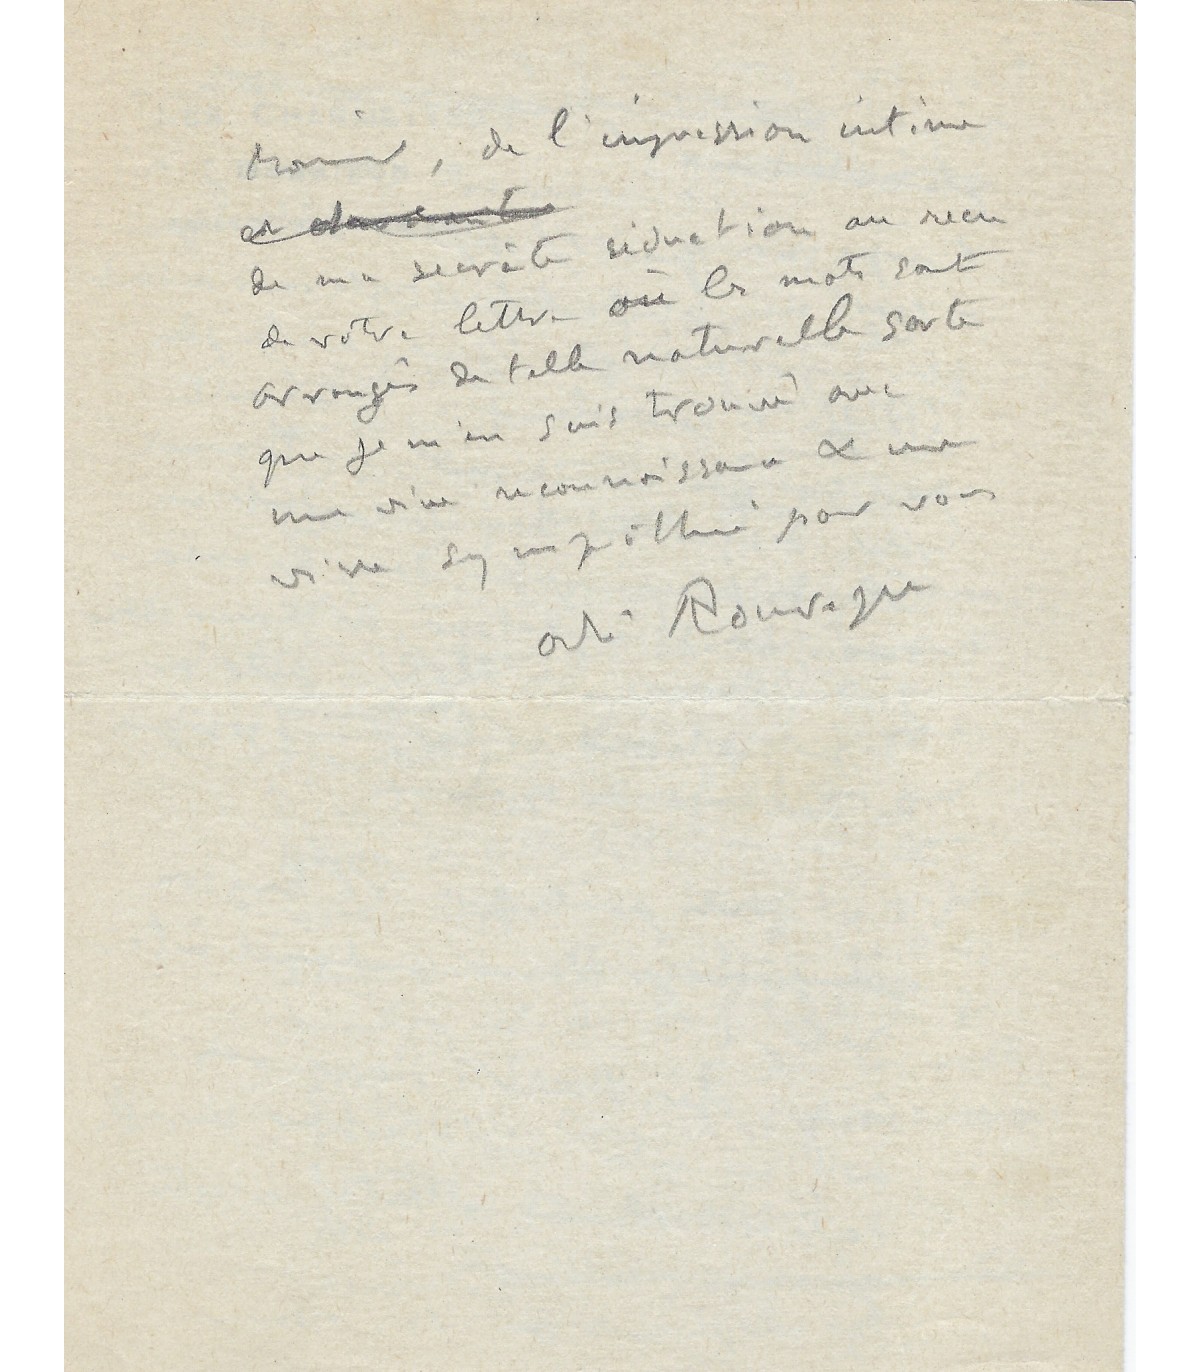 , de l'impression intime
et
de ma secrète séduction au reçu
de votre lettre où les mots sont
arrangés de telle naturelle sorte
que je m'en suis trouvé avec
une vive reconnaissance & une
vive sympathie pour vous
André Rouveyre